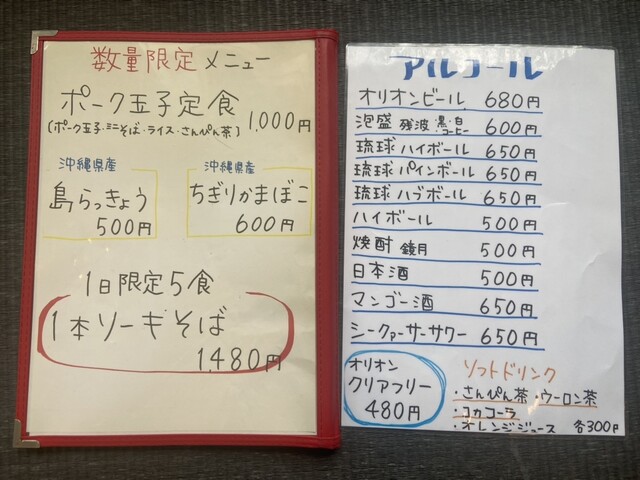 数量限定 メニュー
ポーク玉子定食
(ポーク玉子・ミニそば・ライス・さんぴん茶) 1,000円
沖縄県産
島らっきょう
500円
沖縄県産
ちぎりかまぼこ
600円
1日限定5食
1本ソーキそば
1,480円
アルコール
オリオンビール 680円
泡盛 残波 黒・白 コーヒー 600円
琉球ハイボール 650円
琉球パインボール 650円
琉球ハブボール 650円
ハイボール 500円
焼酎 鏡月 500円
日本酒 500円
マンゴー酒 650円
シークァーサーサワー 650円
オリオン
クリアフリー
480円
ソフトドリンク
・さんぴん茶・ウーロン茶
・コカコーラ
・オレンジジュース 各300円